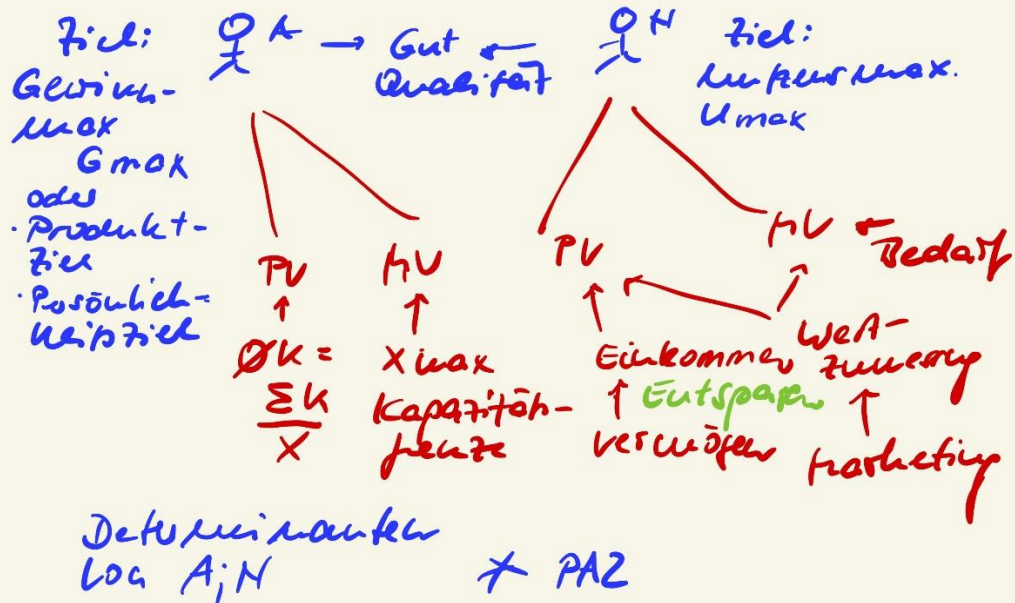 Ziel:
Gewinn-
max
Gmax
oder
· Produkt-
ziel
· Persönlich-
keitsziel
A → Gut ← N
Qualität
Ziel:
Nutzenmax.
Umax
PV
MV
PV
MV ← Bedarf
ØK =
ΣK
X
X max
Kapazitäts-
grenze
Einkommen
Entsparen
Vermögen
Wert-
zumessung
Marketing
Determinanten
von A; N
PAZ